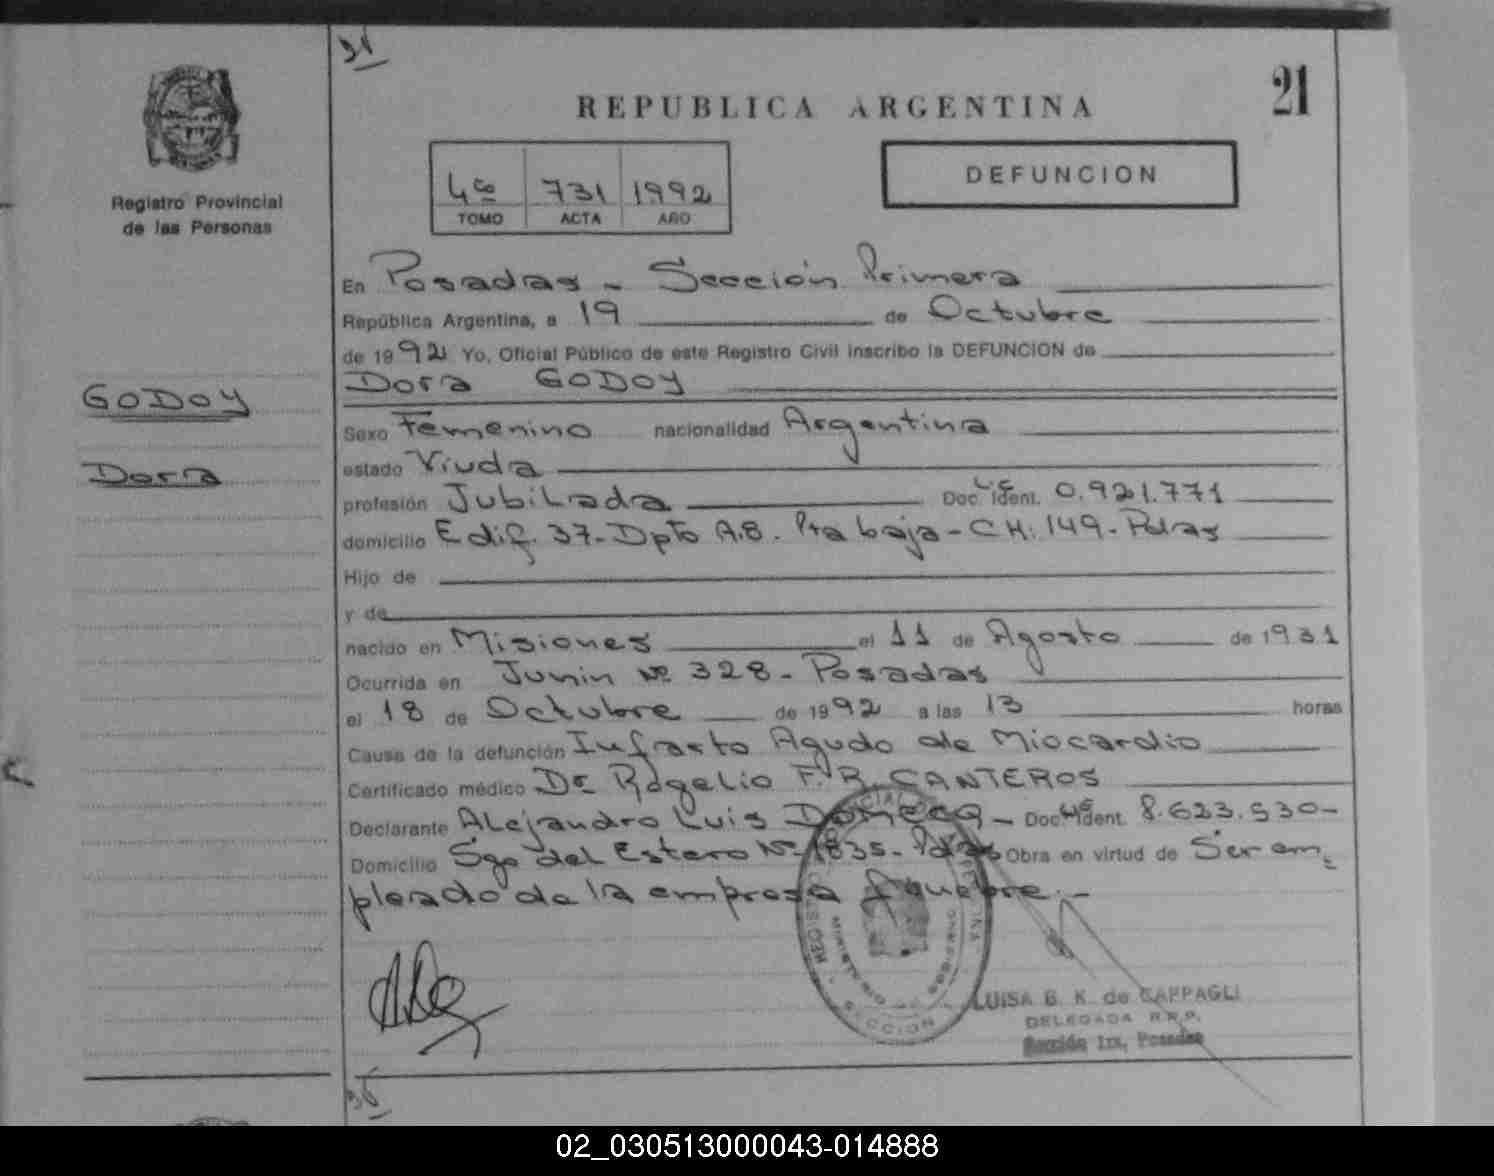 31
21
REPUBLICA ARGENTINA
Registro Provincial
de las Personas
4to 731 1992
TOMO ACTA AÑO
DEFUNCION
En Posadas - Sección Primera
República Argentina, a 19 de Octubre
de 1992 Yo, Oficial Público de este Registro Civil inscribo la DEFUNCION de
Dora GODOY
GODOY
Dora
Sexo Femenino nacionalidad Argentina
estado Viuda
profesión Jubilada Doc. Ident. L.C. 0.921.771
domicilio Edif. 37-Dpto A.8. Pta baja-CH: 149-Pdas
Hijo de
y de
nacido en Misiones el 11 de Agosto de 1931
Ocurrida en Junin Nº 328- Posadas
el 18 de Octubre de 1992 a las 13 horas
Causa de la defunción Infarto Agudo de Miocardio
Certificado médico Dr Rogelio F. R. CANTEROS
Declarante Alejandro Luis DOMECQ- Doc. Ident. 8.623.530-
Domicilio Sgo del Estero Nº 1835- Pdas Obra en virtud de Ser em-
pleado de la empresa fúnebre.-
SECCION
LUISA B. K. de CAPPAGLI
DELEGADA R.R.P.
Sección 1ra. Posadas
02_030513000043-014888